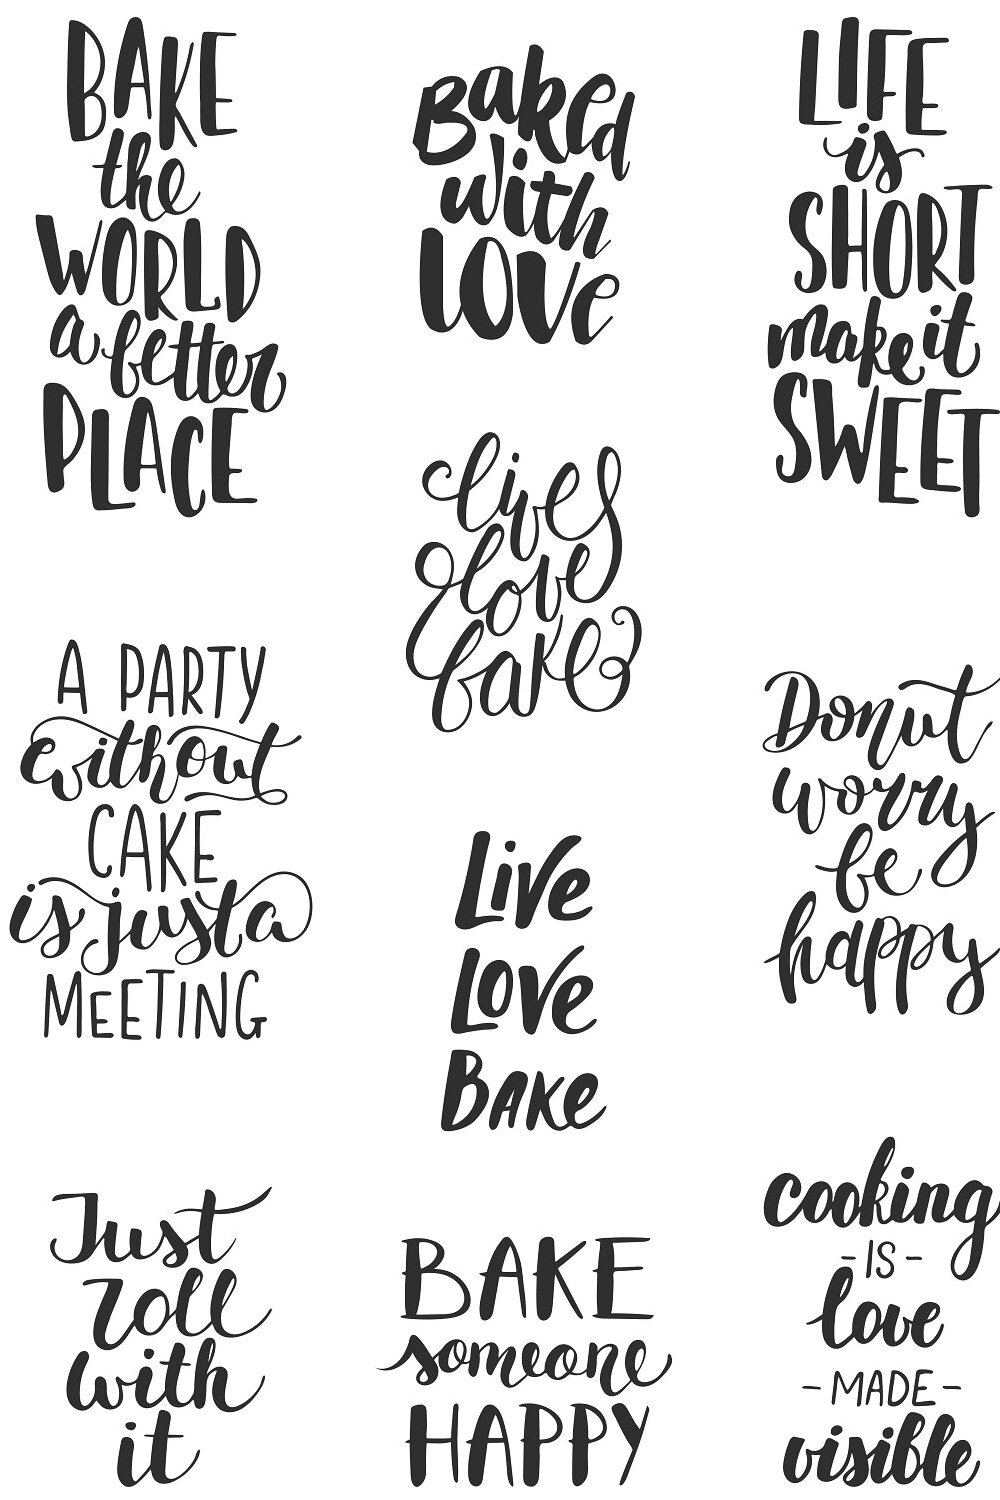 BAKE
the
WORLD
a better
PLACE
Baked
with
LOVE
LIFE
is
SHORT
make it
SWEET
live
love
bake
A PARTY
without
CAKE
is just a
MEETING
Donut
worry
be
happy
Live
Love
Bake
Just
roll
with
it
BAKE
someone
HAPPY
cooking
-IS-
love
-MADE-
visible